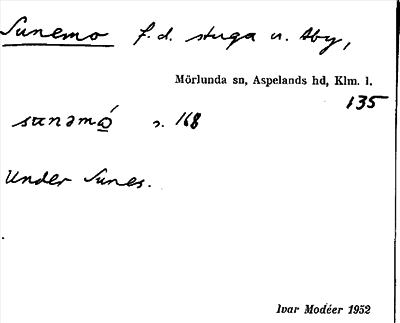 Sunemo f.d. stuga u. Åby,
Mörlunda sn, Aspelands hd, Klm. l.
135
sʉnəmó̲ s. 168
Under Sunes.
Ivar Modéer 1952